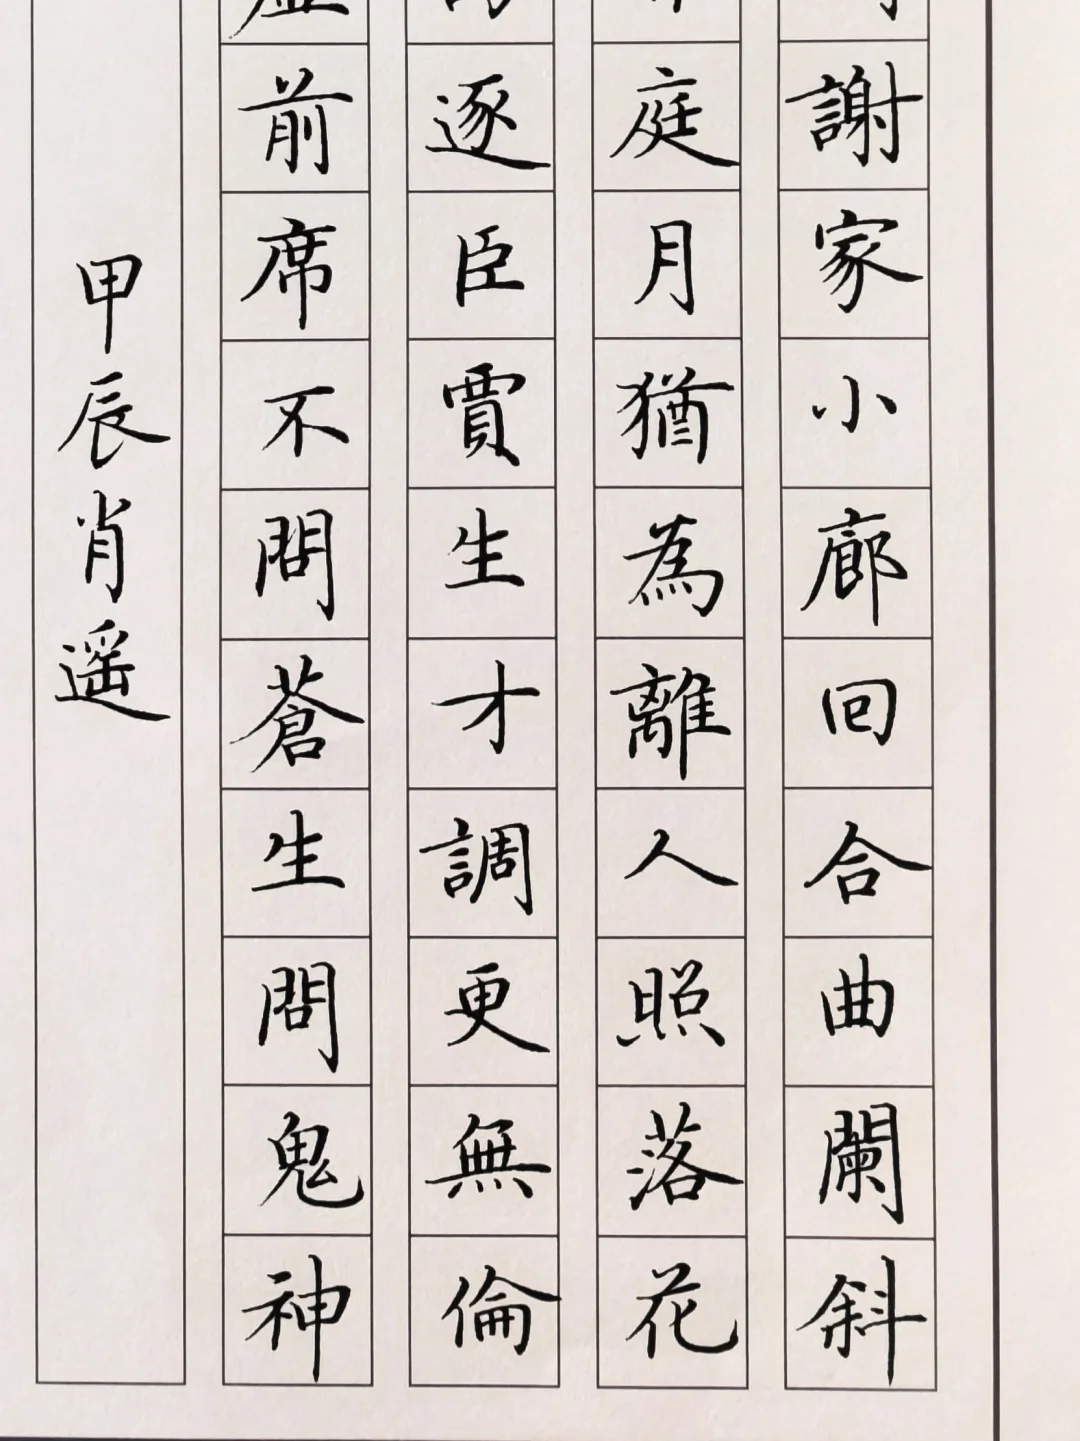 謝家小廊回合曲闌斜
庭月猶為離人照落花
逐臣賈生才調更無倫
前席不問蒼生問鬼神
甲辰肖遥